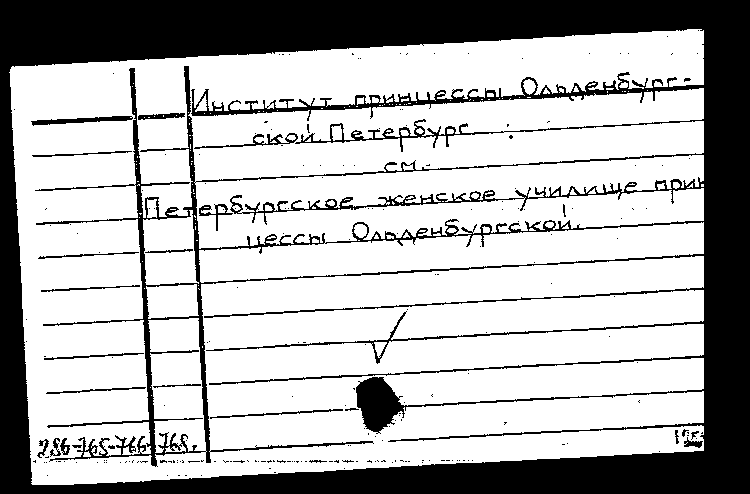 Институт принцессы Ольденбург-
ской. Петербург.
см.
Петербургское женское училище прин
цессы Ольденбургской.
286-765-766-768.